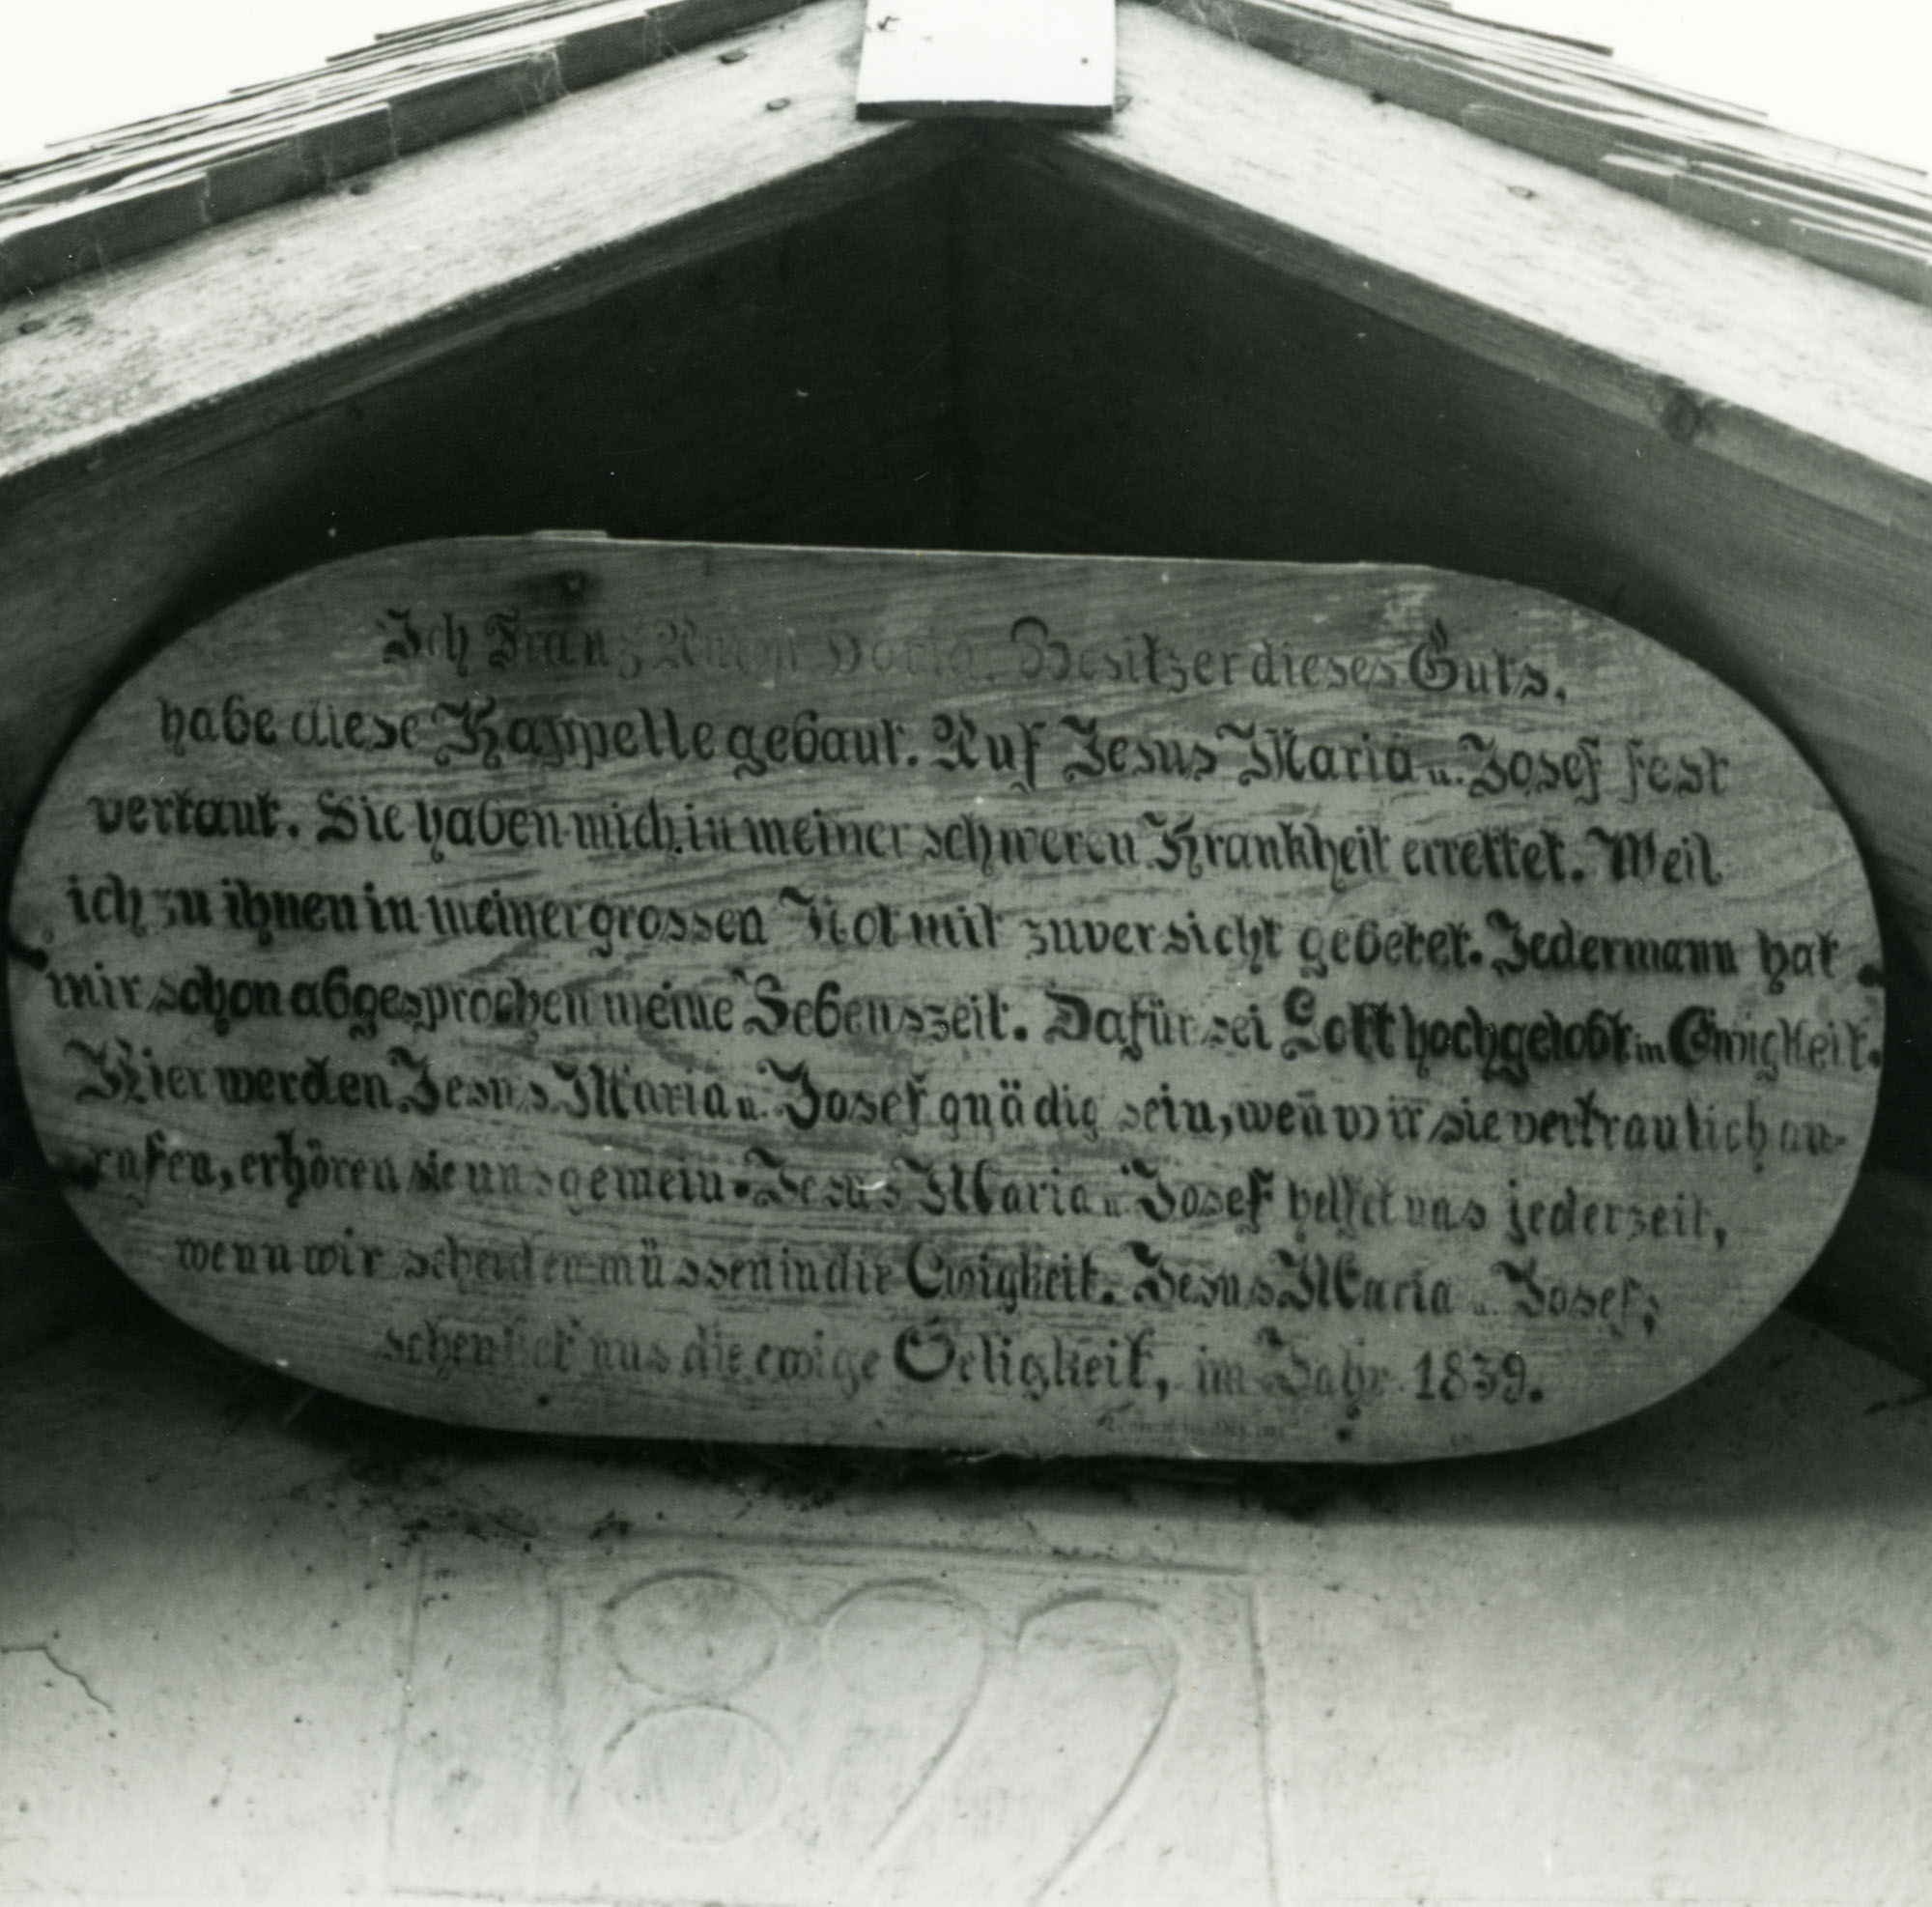 Ich Franz Anton Besitzer dieses Guts,
habe diese Kappelle gebaut. Auf Jesus Maria u. Josef fest
vertaut. Sie haben mich in meiner schweren Krankheit errettet. Weil
ich zu ihnen in meiner grossen Not mit zuversicht gebetet. Jedermann hat
mir schon abgesprochen meine Lebenszeit. Dafür sei Gott hochgelobt in Ewigkeit.
Hier werden Jesus Maria u. Josef gnädig sein, wen̄ wir sie vertraulich an-
rufen, erhören sie uns gemein. Jesus Maria u. Josef helfet uns jederzeit,
wenn wir scheiden müssen in die Ewigkeit. Jesus Maria u. Josef,
schenket uns die ewige Seligkeit, im Jahr 1839.
1897